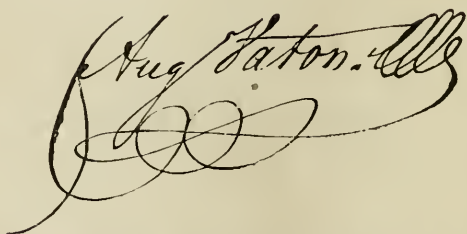 Aug Vaton.